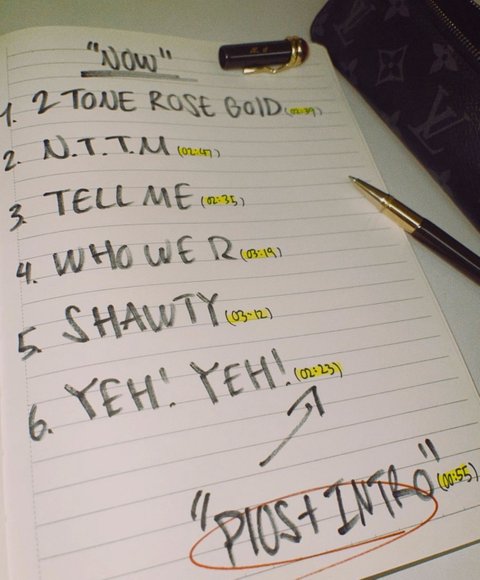 "NOW"
1. 2 TONE ROSE GOLD (02:39)
2. N.T.T.M (02:47)
3. TELL ME (02:35)
4. WHO WE R (03:19)
5. SHAWTY (03:12)
6. YEH! YEH! (02:23)
"PIOS+ INTRO" (00:55)